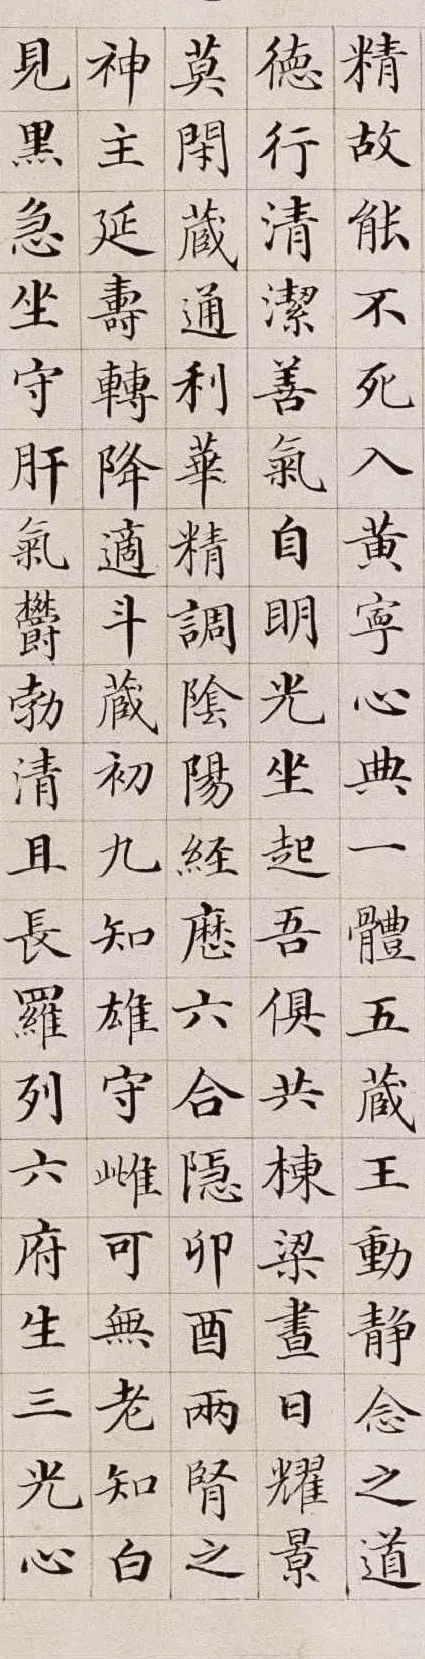 精故能不死入黃寧心典一體五蔵王動静念之道
德行清潔善氣自明光坐起吾俱共棟梁晝日耀景
莫閇蔵通利華精調陰陽経歴六合隠卯酉兩腎之
神主延壽轉降適斗蔵初九知雄守雌可無老知白
見黒急坐守肝氣欎勃清且長羅列六府生三光心